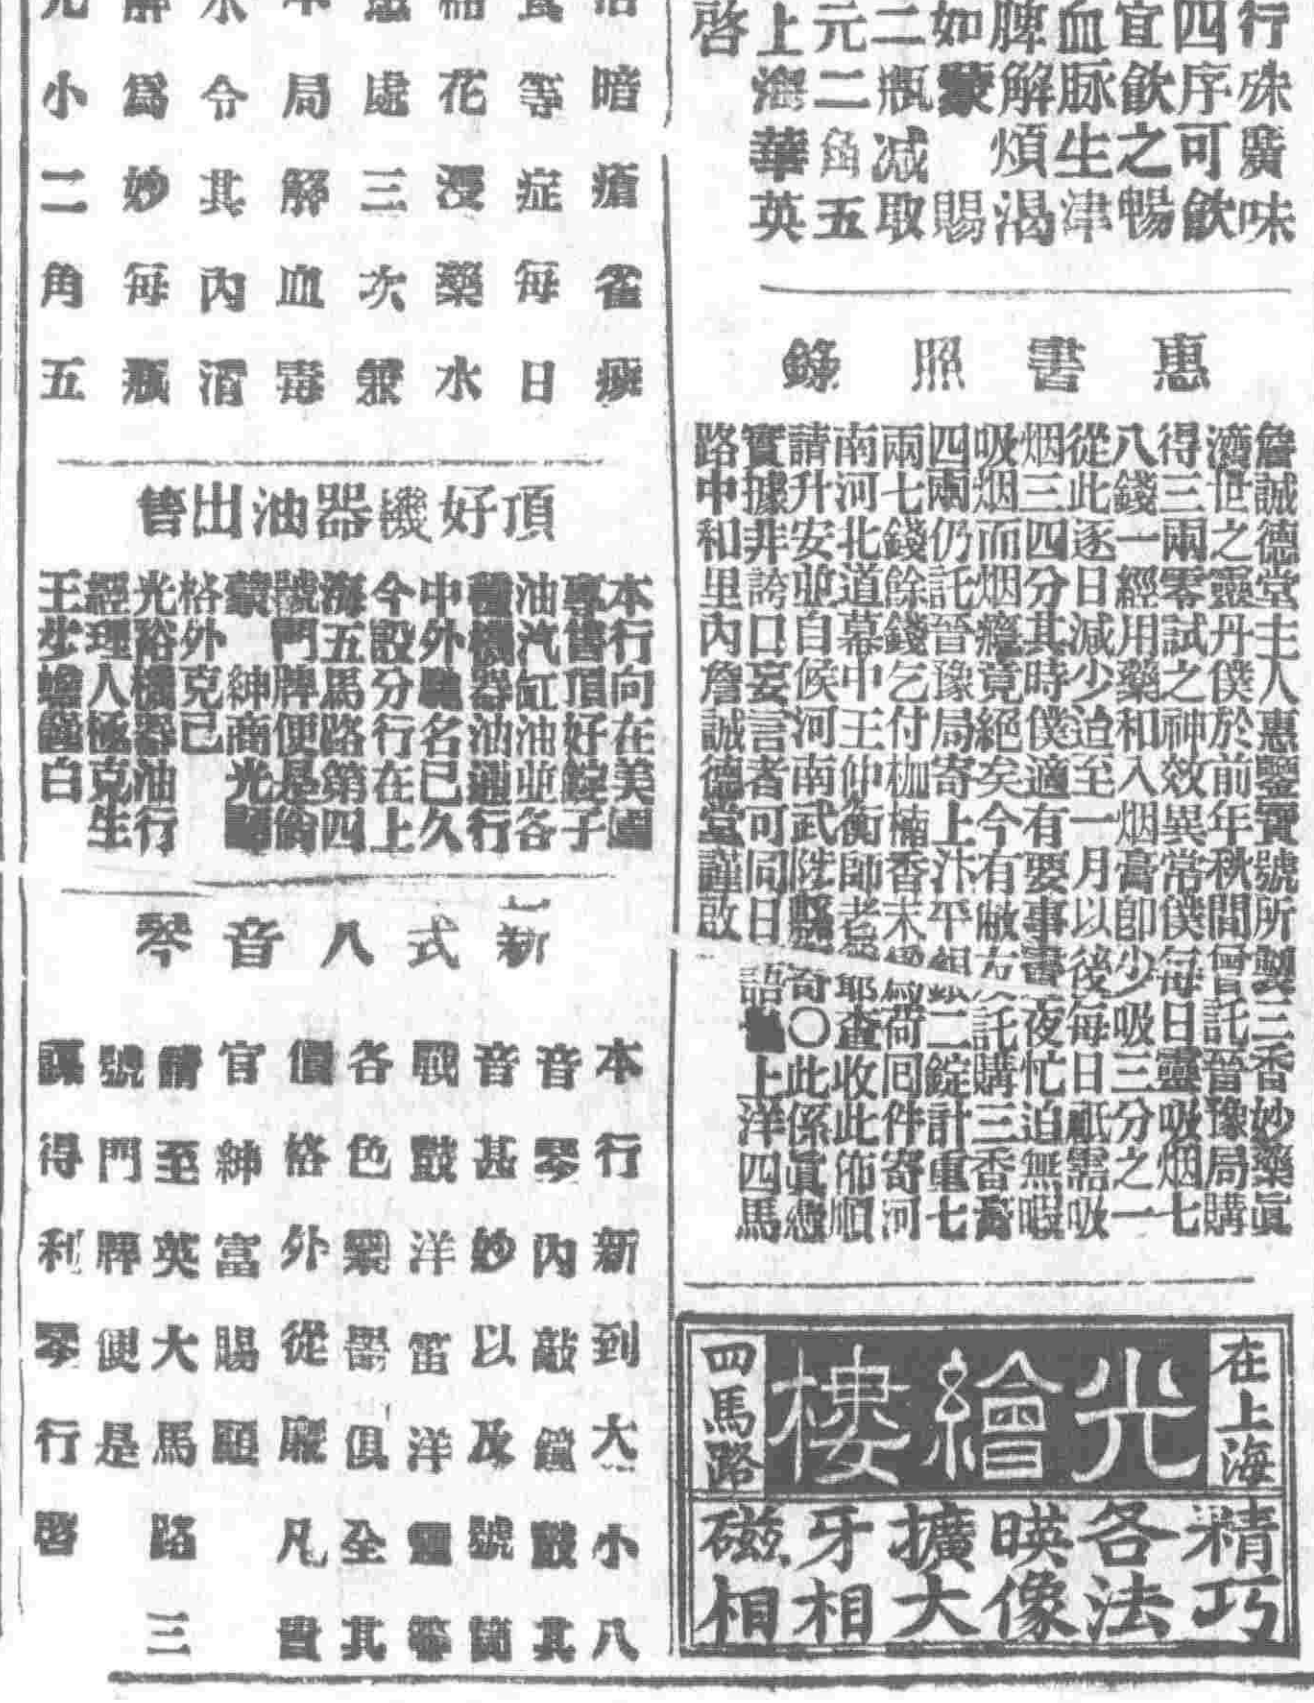 行硃廣味
四序可飲
宜飲之暢
血脉生津
脾解煩渴
如蒙 賜
二瓶減取
元二角五
上海華英
啓
惠書照錄
詹誠德堂主人惠鑒寶號所製三香妙藥眞
濟世之靈丹僕於前年秋間曾託晉豫局購
得三兩零試之神效異常僕每日靈吸烟七
八錢一經用藥和入烟膏卽少吸三分之一
從此逐日減少迨至一月以後每日祗需吸
烟三四分其時僕適有要事晝夜忙迫無暇
吸烟而烟癮竟絕矣今有敝友託購三香膏
四兩仍託晉豫局寄上汴平銀二錠計重七
兩七錢餘錢乞付枷楠香末爲荷回件寄河
南河北道幕中王仲衡師老爺耶查收此佈順
請升安並自候河南武陟縣寄〇此係眞憑
實據非誇口妄言者可同日語 上洋四馬
路中和里內詹誠德堂謹啟
在上海
光繪樓
四馬路
精巧
各法
映像
擴大
牙相
磁相
暗瘡雀癍
等症每日
花浸藥水
處三次兼
局解血毒
令其內消
爲妙每瓶
小二角五
頂好機器油出售
本行向在美國
專售頂好錠子
油汽缸油並各
種機器油通行
中外馳名已久
今設分行在上
海五馬路第四
號門牌便是倘
蒙 紳商光顧
格外克己
光裕機器油行
經理人極克生
王步蟾仝白
新式八音琴
本行新到大小八
音琴內敲鐘鼓其
音甚妙以及號筒
戰鼓洋笛洋 等
各色樂器俱全其
價格外從廉凡貴
官紳富賜顧
請至英大馬路三
號門牌便是
謀得利琴行啓